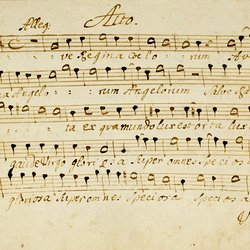 Alto.
Alleg.
ve Regina Coelo rum Av
Angelo rum Angelorum Salve R
ta ex qua mundo lux est orta lux
gaude Virgo glori osa Super omnes Speciosa
gloriosa Super omnes Speciosa Speciosa